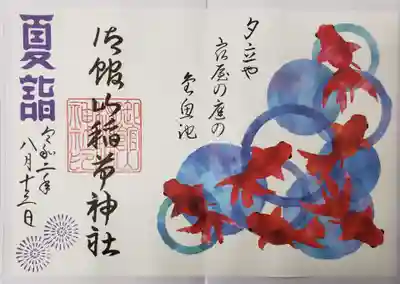 夕立や
宿屋の庭の
金魚池
御館山稲荷神社
夏詣
令和二年
八月十三日